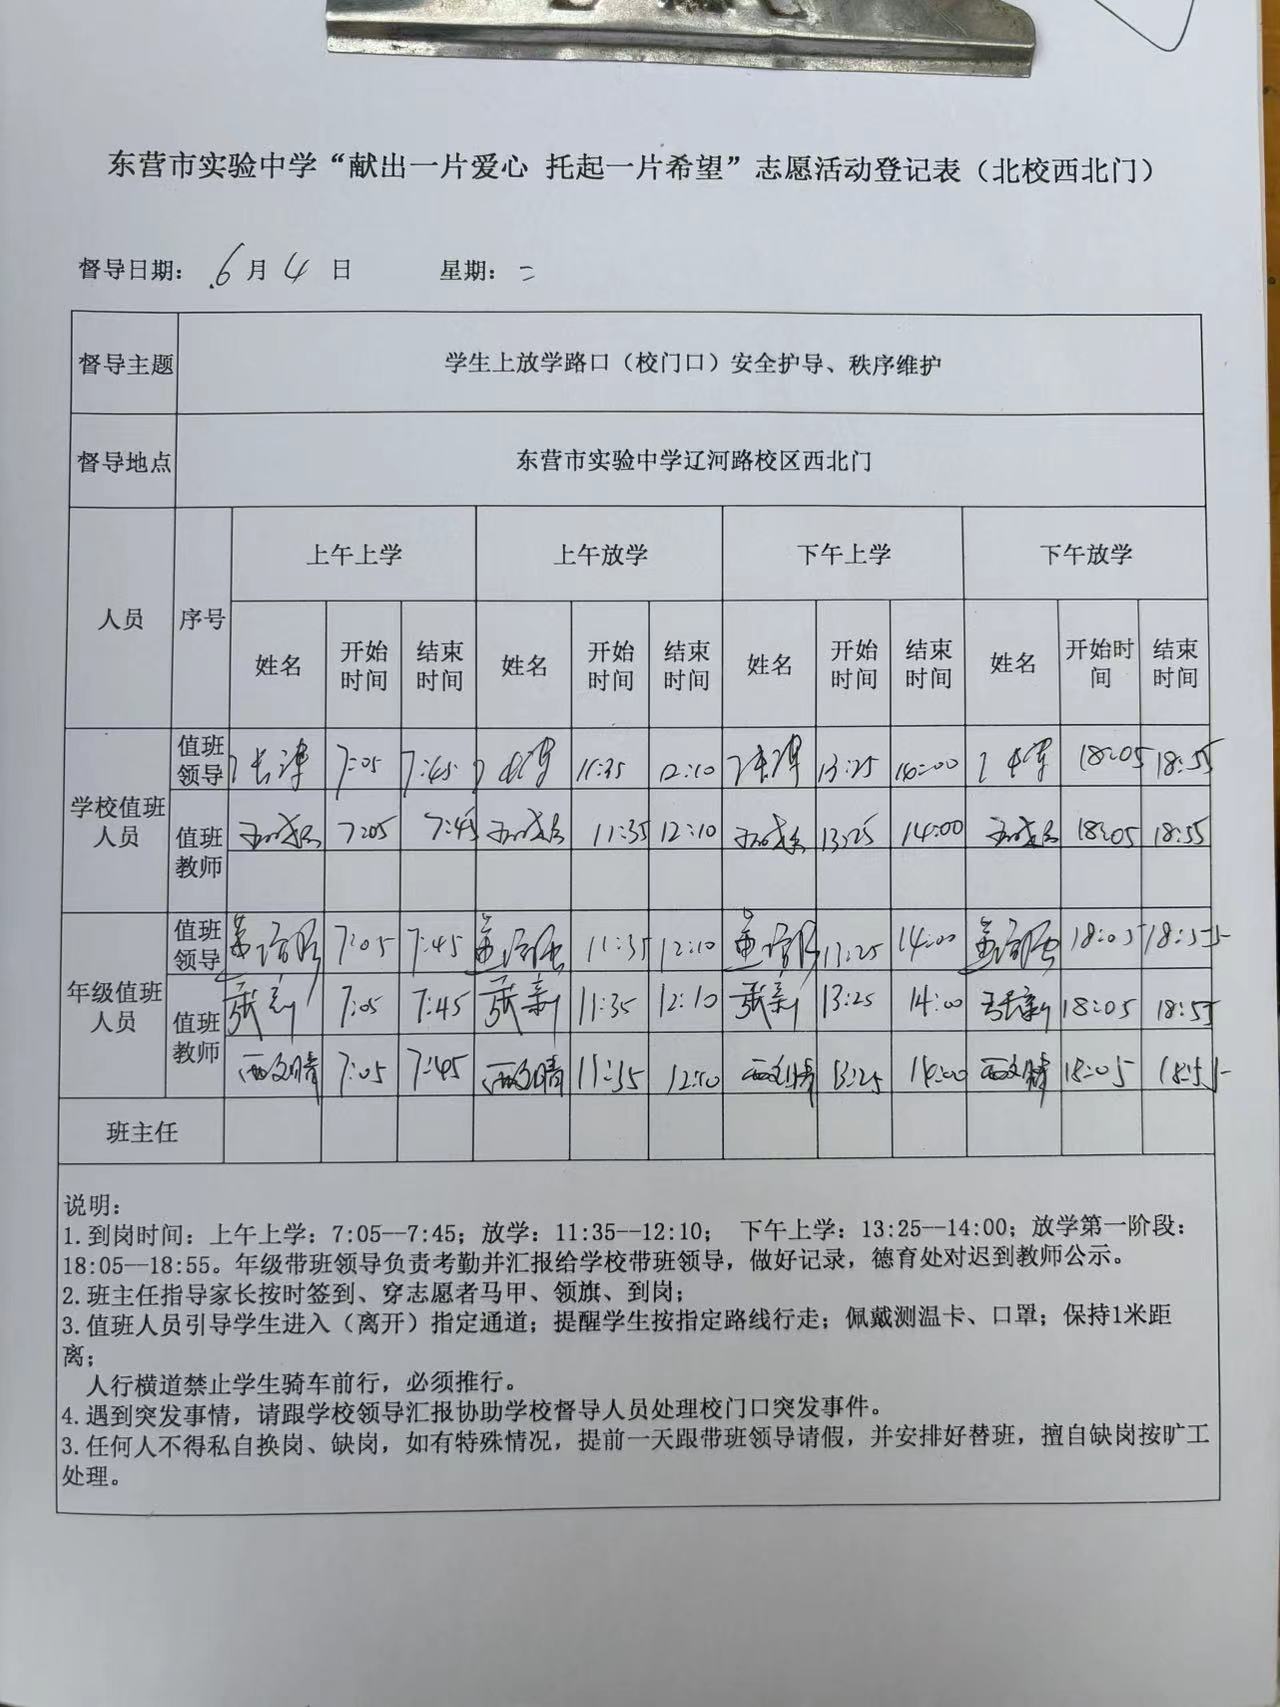 东营市实验中学“献出一片爱心 托起一片希望”志愿活动登记表（北校西北门）
督导日期： 6月4日 星期：二
督导主题 学生上放学路口（校门口）安全护导、秩序维护
督导地点 东营市实验中学辽河路校区西北门
人员 序号 上午上学 上午放学 下午上学 下午放学
姓名 开始时间 结束时间 姓名 开始时间 结束时间 姓名 开始时间 结束时间 姓名 开始时间 结束时间
学校值班人员
值班领导 7:05 7:45 11:35 12:10 13:25 14:00 18:05 18:55
值班教师 7:05 7:45 11:35 12:10 13:25 14:00 18:05 18:55
年级值班人员
值班领导 7:05 7:45 11:35 12:10 13:25 14:00 18:05 18:55
值班教师 张新 7:05 7:45 张新 11:35 12:10 张新 13:25 14:00 张新 18:05 18:55
西文晴 7:05 7:45 西文晴 11:35 12:10 西文晴 13:25 14:00 西文晴 18:05 18:55
班主任
说明：
1.到岗时间：上午上学：7:05--7:45；放学：11:35--12:10； 下午上学：13:25--14:00；放学第一阶段：
18:05--18:55。年级带班领导负责考勤并汇报给学校带班领导，做好记录，德育处对迟到教师公示。
2.班主任指导家长按时签到、穿志愿者马甲、领旗、到岗；
3.值班人员引导学生进入（离开）指定通道；提醒学生按指定路线行走；佩戴测温卡、口罩；保持1米距
离；
人行横道禁止学生骑车前行，必须推行。
4.遇到突发事情，请跟学校领导汇报协助学校督导人员处理校门口突发事件。
3.任何人不得私自换岗、缺岗，如有特殊情况，提前一天跟带班领导请假，并安排好替班，擅自缺岗按旷工
处理。